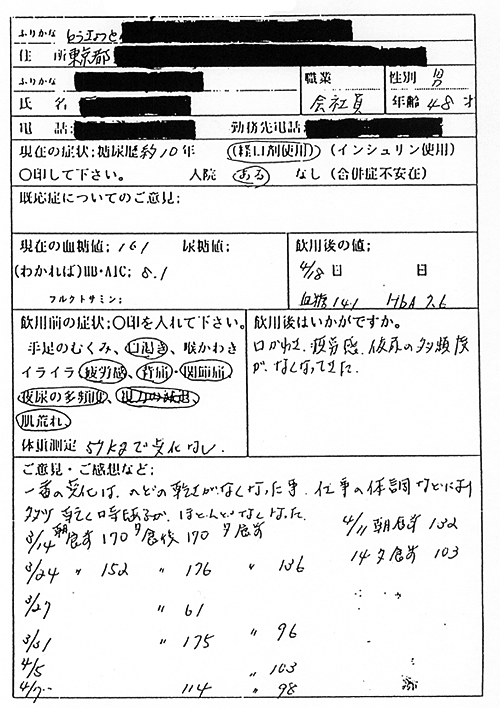 ふりかな とうきょうと
住 所 東京都
ふりかな
氏 名
職業 会社員
性別 男
年齢 48 才
電 話: 勤務先電話:
現在の症状;糖尿歴 約10年 (経口剤使用) (インシュリン使用)
〇印して下さい。 入院 ある なし (合併症不安在)
既応症についてのご意見:
現在の血糖値; 161 尿糖値;
(わかれば)HB・A1C; 8.1
フルクトサミン;
飲用後の値;
4/18 日 日
血糖 141 HbA 7.6
飲用前の症状;〇印を入れて下さい。
手足のむくみ、口渇き、喉かわき
イライラ 疲労感、背痛・関節痛、
夜尿の多頻度、視力の減退、
肌荒れ、
体重測定 57kgで変化なし.
飲用後はいかがですか。
口かわき、疲労感、夜尿の多頻度
がなくなってきた.
ご意見・ご感想など;
一番の変化は、のどの乾きがなくなった事、仕事の体調などにより
多少乾く時はあるが、ほとんどなくなった.
3/14 朝食前 170 夕食後 170 夕食前
3/24 〃 152 〃 176 〃 136
3/27 〃 61
3/31 〃 175 〃 96
4/5 〃 103
4/7 114 〃 98
4/11 朝食前 132
14 夕食前 103